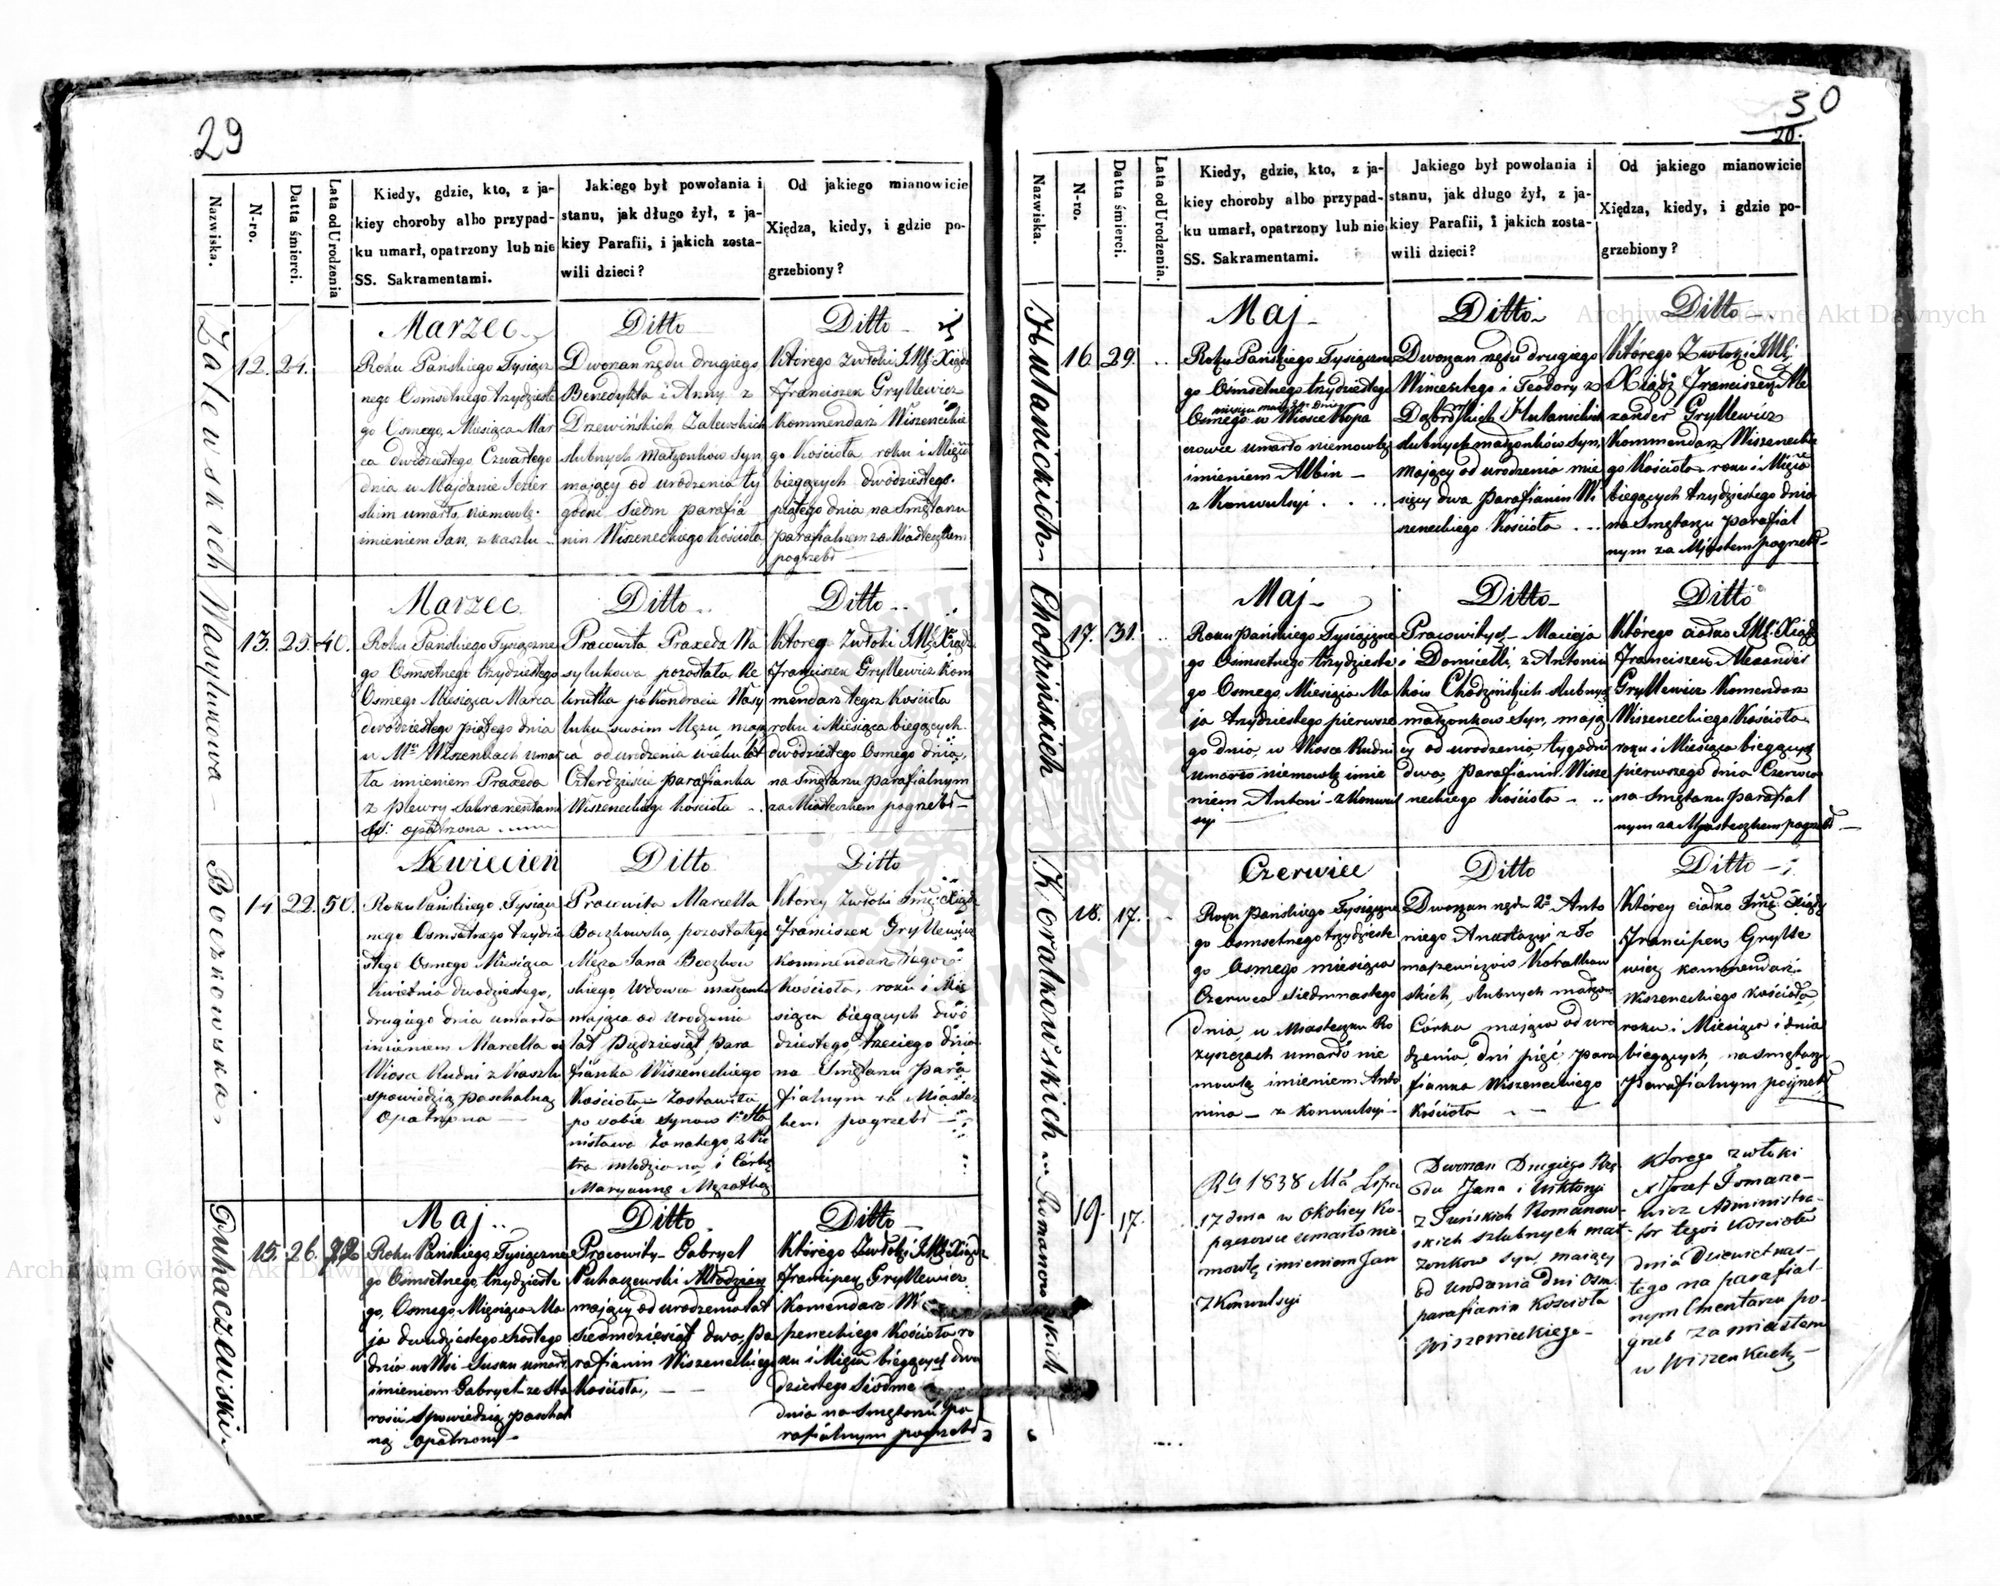 29
Nazwiska.
N-ro.
Datta śmierci.
Lata od Urodzenia
Kiedy, gdzie, kto, z ja-
kiey choroby albo przypad-
ku umarł, opatrzony lub nie
SS. Sakramentami.
Jakiego był powołania i
stanu, jak długo żył, z ja-
kiey Parafii, i jakich zosta-
wili dzieci?
Od jakiego mianowicie
Xiędza, kiedy, i gdzie po-
grzebiony?
Zalewskich
12. 24.
Marzec
Roku Pańskiego Tysiącz
nego Osmsetnego trzydzieste
go Osmego, Miesiąca Mar
ca dwódziestego Czwartego
dnia w Majdanie Jezier
skim umarło niemowlę
imieniem Jan, z kaszlu
Ditto
Dworzan rzędu drugiego
Benedykta i Anny z
Drzewińskich Zalewskich
slubnych małżonkow syn,
mający od urodzenia ty
godni Siedm parafia
nin Wiszeneckiego Kościoła
Ditto
Którego zwłoki J.M. Xiądz
Franciszek Gryllewicz
Kommendarz Wiszeneckie
go Kościoła roku i Miesią
bieżących dwódziestego
piątego dnia na Smętarzu
parafialnem za Miasteczkem
pogrzebł
Wasylukowa
13. 25. 40.
Marzec
Roku Pańskiego Tysiączne
go Osmsetnego trzydziestego
Osmego Miesiąca Marca
dwódziestego piątego dnia
w M. Wiszenkach umar
ła imieniem Praxeda
z plewry Sakramentami
SS. opatrzona
Ditto
Pracowita Praxeda Wa
sylukowa pozostała
po Kondracie Wasy
luku swoim Mężu, mają
ca od urodzenia wieku lat
Czterdzieście parafianka
Wiszeneckiego Kościoła
Ditto
Ktorey zwłoki J.M. Xiądz
Franciszek Gryllewicz Kom
mendarz tegoż Kościoła
roku i Miesiąca bieżących
dwódziestego Osmego dnia,
na Smętarzu parafialnym
za Miasteczkem pogrzebł
Boczkowska
14 22. 50.
Kwiecień
Roku Pańskiego Tysiącz
nego Osmsetnego trzydzie
stego Osmego Miesiąca
Kwietnia dwodziestego,
drugiego dnia umarła
imieniem Marcella we
Wiosce Rudni z kaszlu
spowiedzią paschalną
opatrzona
Ditto
Pracowita Marcella
Boczkowska, pozostałego
Męża Jana Boczkow
skiego, Wdowca małżonka
mająca od urodzenia
lat Pięździesiąt, para
fianka Wiszeneckiego
Kościoła Zostawiła
po sobie synow 1. Sta
nisława Żonatego, 2. Pio
tra młodziana, i Córkę
Maryannę Mężatkę
Ditto
Ktorey zwłoki Jmć Xiądz
Franciszek Gryllewicz
Kommendarz tegoż
Kościoła, roku i Mie
siąca bieżących dwó
dziestego, trzeciego dnia
na Smętarzu para
fialnym za Miastecz
kem pogrzebł
Puhaczewski
15. 26. 72
Maj
Roku Pańskiego, Tysiączne
go Osmsetnego, trzydzieste
go, Osmego, Miesiąca Ma
ja dwudziestego szóstego
dnia we Wsi Susku umarł
imieniem Gabryel ze sta
rości Spowiedzią paschal
ną opatrzony
Ditto
Pracowity Gabryel
Puhaczewski Młodzian
mający od urodzenia lat
siedmdziesiąt dwa, Pa
rafianin Wiszeneckiego
Kościoła,
Ditto
Którego zwłoki J.M. Xiądz
Franciszek Gryllewicz
Komendarz Wi
szeneckiego Kościoła ro
ku i Miesią bieżących dwu
dziestego Siódme
dnia na Smętarzu Pa
rafialnym pogrzebł
30
20.
Nazwiska.
N-ro.
Datta śmierci.
Lata od Urodzenia.
Kiedy, gdzie, kto, z ja-
kiey choroby albo przypad-
ku umarł, opatrzony lub nie
SS. Sakramentami.
Jakiego był powołania i
stanu, jak długo żył, z ja-
kiey Parafii, i jakich zosta-
wili dzieci?
Od jakiego mianowicie
Xiędza, kiedy, i gdzie po-
grzebiony?
Hulanickich
16. 29.
Maj
Roku Pańskiego Tysiączne
go Ośmsetnego trzydziestego
Osmego w Wiosce Kopa
czowce umarło niemowlę
imieniem Albin
z Konwulsyi
Ditto
Dworzan rzędu drugiego
Wincentego i Teodory z
Dąbrowskich Hulanickich
slubnych małżonków syn,
mający od urodzenia mie
sięcy dwa parafianin Wi
szeneckiego Kościoła
Ditto
Którego Zwłoki J.M.
Xiądz Franciszek Ale
xander Gryllewicz
Kommendarz Wiszeneckie
go Kościoła roku i Miesią
bieżących trzydziestego dnia
na Smętarzu parafial
nym za Miastem pogrzebł
Chodzińskich
17. 31.
Maj
Roku Pańskiego Tysiączne
go Osmsetnego trzydzieste
go Osmego, Miesiąca Ma
ja trzydziestego pierwsze
go dnia, w Wiosce Rudni
umarło niemowlę imie
niem Antoni z Konwul
syi
Ditto
Pracowitych Macieja
i Domicelli, z Antoniu
ków Chodzińskich slubnych
małżonkow Syn, mają
cy od urodzenia, tygodni
dwa, parafianin Wisze
neckiego Kościoła
Ditto
Którego ciałko J.M. Xiądz
Franciszek Alexander
Gryllewicz Komendarz
Wiszeneckiego Kościoła
roku i Miesiąca bieżących
pierwszego dnia Czerwca
na Smętarzu parafial
nym za Miasteczkem pogrzebł
Koralkowskich
18. 17.
Czerwiec
Roku Pańskiego Tysiączne
go Osmsetnego trzydzieste
go Osmego miesiąca
Czerwca siedmnastego
dnia, w Miasteczku Ro
zyszczach umarło nie
mowlę imieniem Anto
nina z Konwulsyi
Ditto
Dworzan rzędu 2go Anto
niego Anastazyi z To
maszewiczow Koralkow
skich, slubnych małżon
Córka mająca od uro
dzenia, dni pięć para
fianka Wiszeneckiego
Kościoła
Ditto
Którey ciałko Jmć Xiądz
Franciszek Grylle
wicz Kommendarz
Wiszeneckiego Kościoła
roku i Miesiąca i dnia
bieżących, na smętarzu
Parafialnym pogrzebł
Romanowskich
19. 17.
Ru 1838 Mca Lipca
17 dnia w Okolicy Ko
paczowce umarło nie
mowlę imieniem Jan
z Konwulsyi
Dworzan Drugiego Rzę
du Jana i Wiktoryi
z Tuńskich Romanow-
skich szlubnych mał-
żonkow Syn, maiący
od Urodzenia Dni Osm.
parafianin Kościoła
Wiszenieckiego
Ktorego zwłoki
X Jozef Tomasze-
wicz Administra-
tor tegoż Kościoła
dnia Dziewietnas-
tego na parafial-
nym Cmentarzu po-
grzeb za miastem
w Wiszenkach
Archiwum Główne Akt Dawnych
Archiwum Główne Akt Dawnych